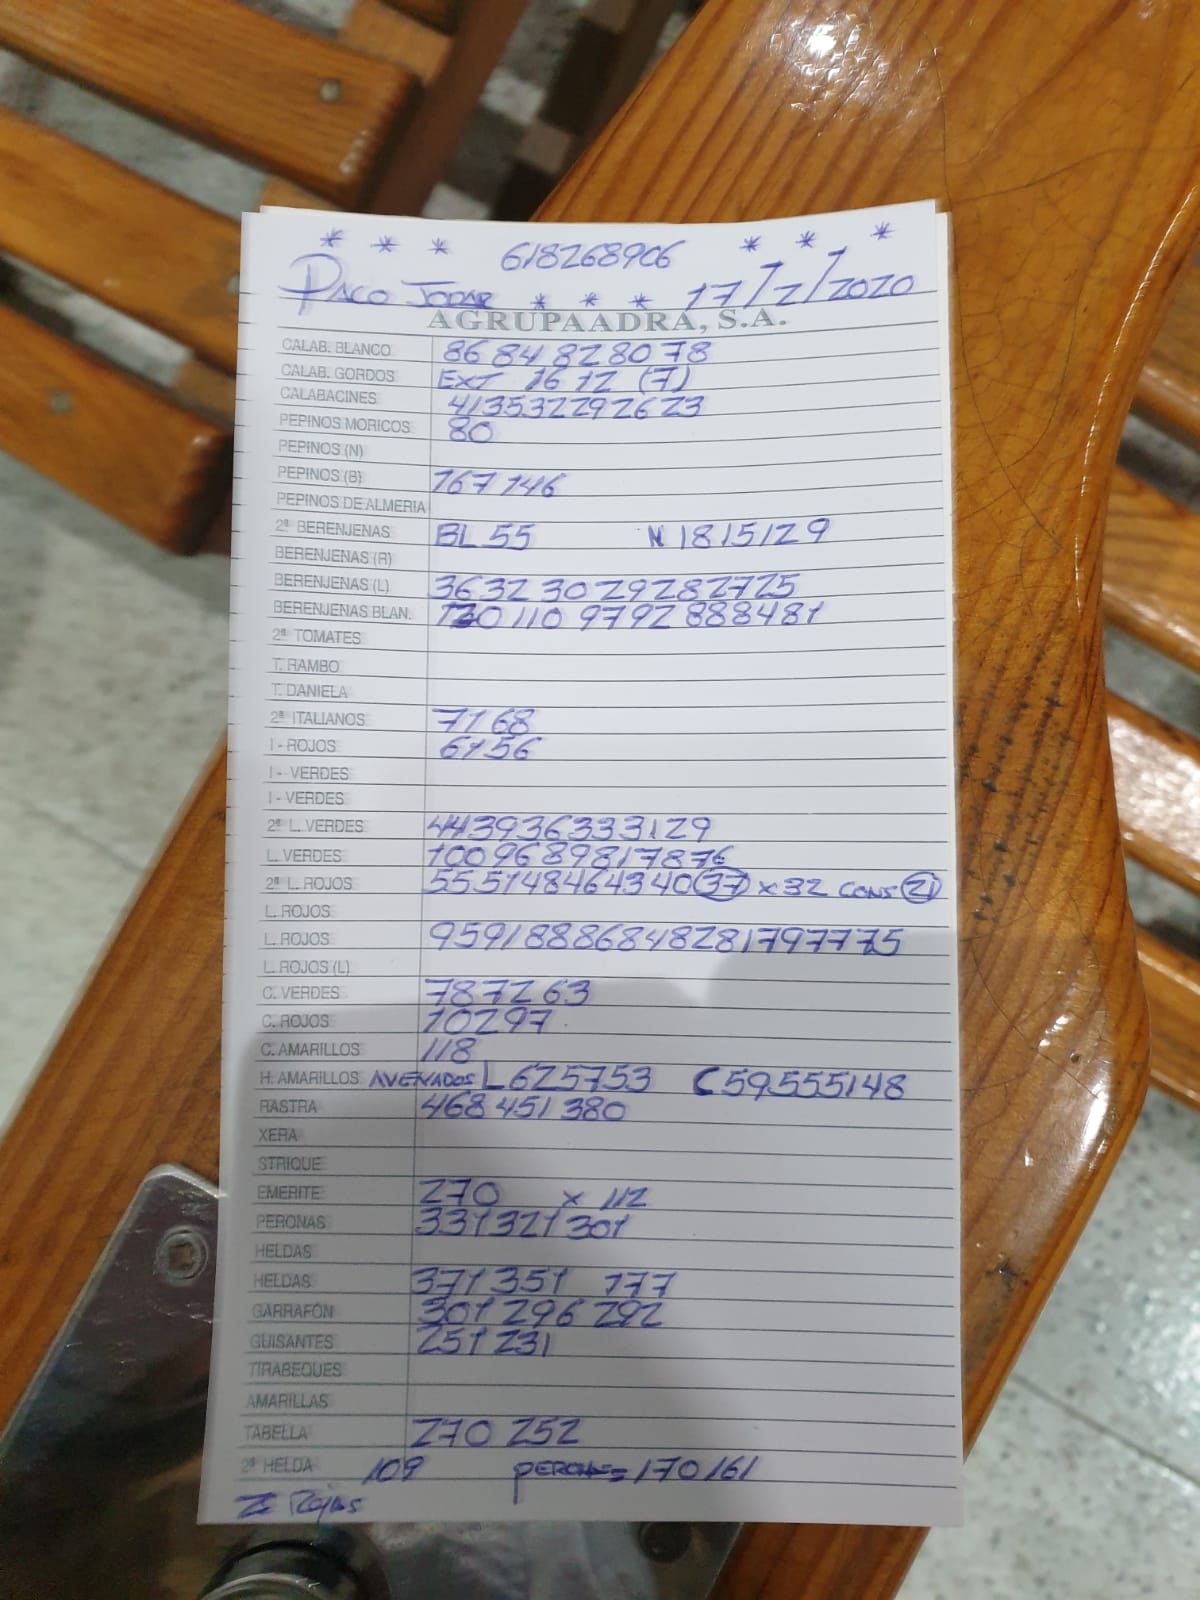 * * * 618268906 * * *
PACO JODAR * * * 17/2/2020
AGRUPAADRA, S.A.
CALAB. BLANCO 8684828078
CALAB. GORDOS EXT 16 12 (7)
CALABACINES 413532292623
PEPINOS MORICOS 80
PEPINOS (N)
PEPINOS (B) 167 146
PEPINOS DE ALMERIA
2ª BERENJENAS BL 55 N 1815129
BERENJENAS (R)
BERENJENAS (L) 3632 3029282725
BERENJENAS BLAN. 130 110 9792 888481
2ª TOMATES
T. RAMBO
T. DANIELA
2ª ITALIANOS 7168
I - ROJOS 6156
I - VERDES
I - VERDES
2ª L. VERDES 443936333129
L. VERDES 1009689817876
2ª L. ROJOS 555148464340 (37) x 32 CONS (21)
L. ROJOS
L. ROJOS 95918886848281797775
L. ROJOS (L)
C. VERDES 787263
C. ROJOS 10297
C. AMARILLOS 118
H. AMARILLOS AVENADOS L 625753 C 59555148
RASTRA 468 451 380
XERA
STRIQUE
EMERITE 270 x 112
PERONAS 331 321 301
HELDAS
HELDAS 371 351 177
GARRAFÓN 301 296 292
GUISANTES 251 231
TIRABEQUES
AMARILLAS
TABELLA 270 252
2ª HELDA 109 170 161
Rojas